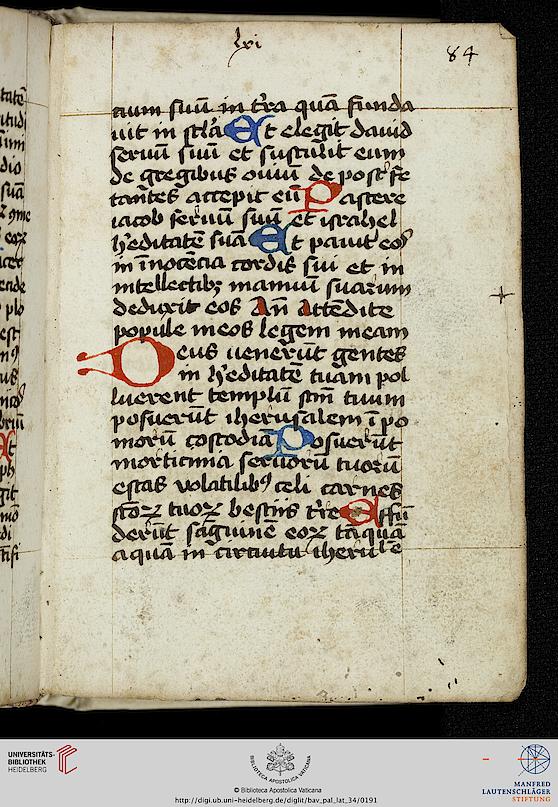 lxi
84
cium suū in t̄ra quā funda
uit in sc̄la Et elegit dauid
seruū suū et sustulit eum
de gregibus ouiū de post fe
tantes accepit eū Pascere
iacob seruū suū et israhel
h̓editatē suā Et pauit eos
in īnocēcia cordis sui et in
intellectibꝫ manuū suarum
deduxit eos An̄ Attēdite
popule meos legem meam
Deus uenerūt gentes
in h̓editatē tuam pol
luerent templū scm̄ tuum
posuerūt iherusalem ī po
morū costodiā Posuerūt
morticinia seruorū tuorū
estas volatilibꝰ celi carnes
sc̄oꝝ tuoꝝ bestiis tr̄e Effu
derūt sāguinē eoꝝ tāquā
aquā in circuitu iherl̄ē
UNIVERSITÄTS-
BIBLIOTHEK
HEIDELBERG
BIBLIOTHECA APOSTOLICA VATICANA
© Biblioteca Apostolica Vaticana
http://digi.ub.uni-heidelberg.de/diglit/bav_pal_lat_34/0191
MANFRED
LAUTENSCHLÄGER
STIFTUNG